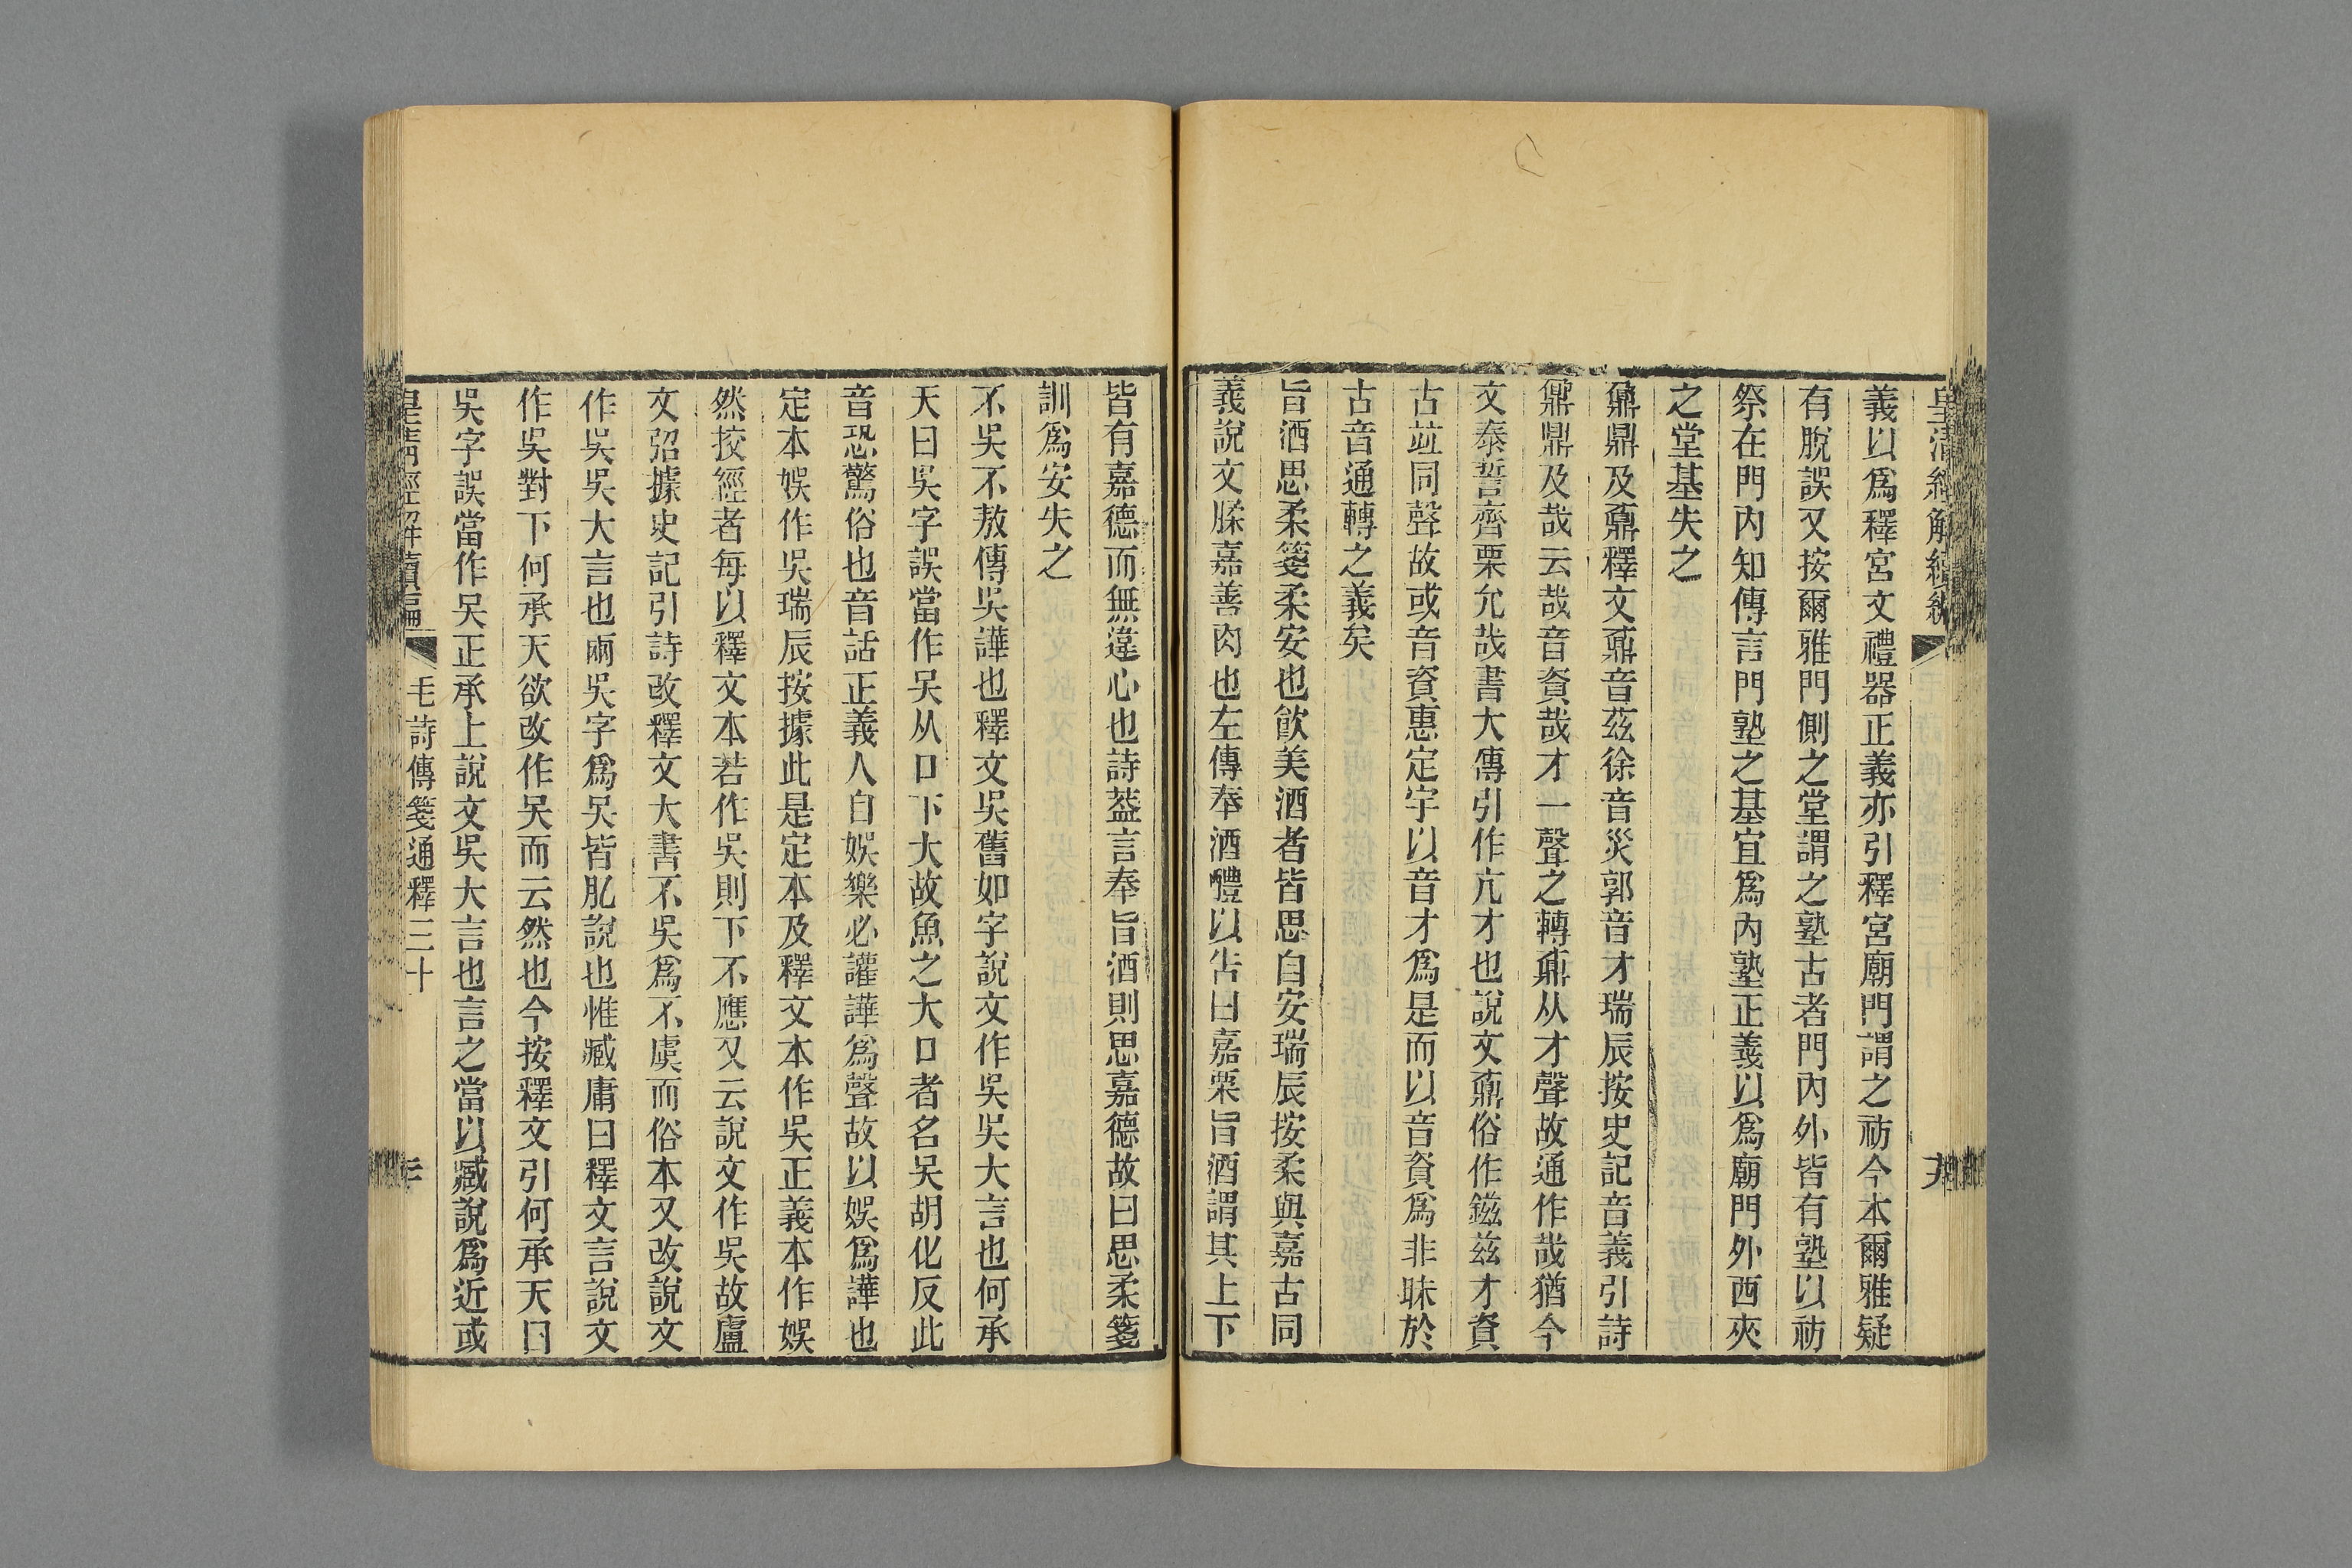 皇清經解續編
義以爲釋宮文禮器正義亦引釋宮廟門謂之祊今本爾雅疑
有脫誤又按爾雅門側之堂謂之塾古者門內外皆有塾以祊
祭在門內知傳言門塾之基宜爲內塾正義以爲廟門外西夾
之堂基失之
鼐鼎及鼒釋文鼒音茲徐音災郭音才瑞辰按史記音義引詩
鼐鼎及哉云哉音資哉才一聲之轉鼒从才聲故通作哉猶今
文泰誓齊栗允哉書大傳引作亢才也說文鼒俗作鎡茲才資
古竝同聲故或音資惠定宇以音才爲是而以音資爲非昧於
古音通轉之義矣
旨酒思柔箋柔安也飮美酒者皆思自安瑞辰按柔與嘉古同
義說文腬嘉善肉也左傳奉酒醴以告曰嘉栗旨酒謂其上下
皆有嘉德而無違心也詩葢言奉旨酒則思嘉德故曰思柔箋
訓爲安失之
不吳不敖傳吳譁也釋文吳舊如字說文作吳吳大言也何承
天曰吳字誤當作㕦从口下大故魚之大口者名㕦胡化反此
音恐驚俗也音話正義人自娛樂必讙譁爲聲故以娛爲譁也
定本娛作吳瑞辰按據此是定本及釋文本作吳正義本作娛
然挍經者每以釋文本若作吳則下不應又云說文作吳故盧
文弨據史記引詩改釋文大書不吳爲不虞而俗本又改說文
作吳吳大言也兩吳字爲㕦皆肊說也惟臧庸曰釋文言說文
作吳對下何承天欲改作㕦而云然也今按釋文引何承天曰
吳字誤當作㕦正承上說文吳大言也言之當以臧說爲近或
皇淸經解續編 毛詩傳箋通釋三十